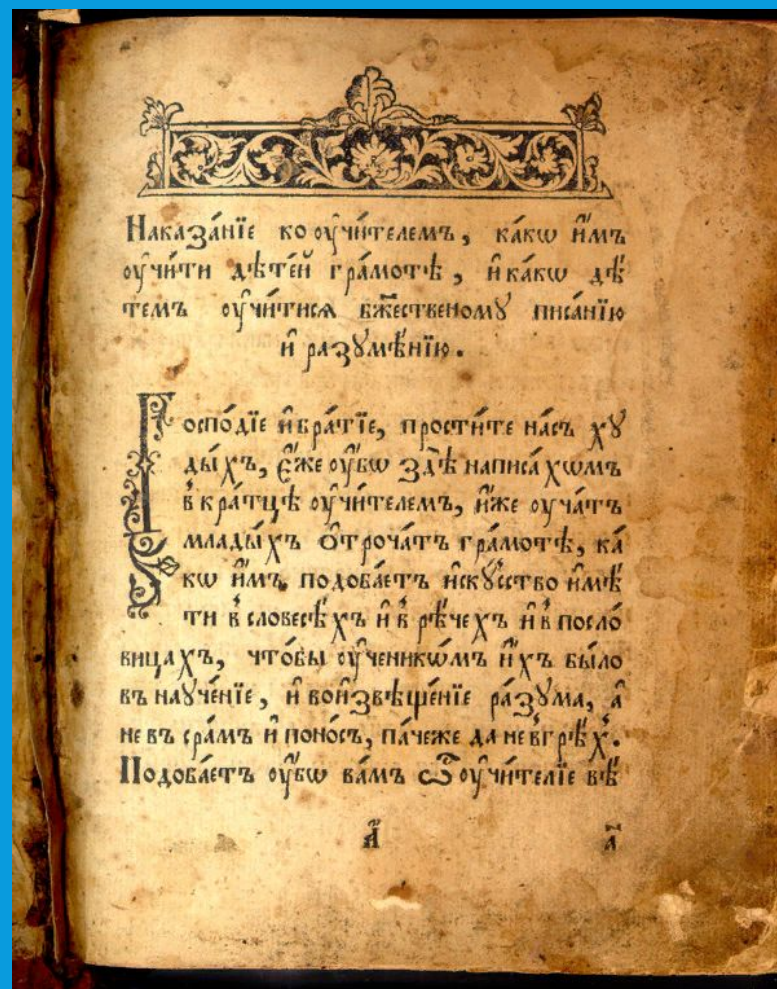 Наказа́нїе ко оучи́телемъ, ка́кѡ и҆̀мъ
оучи́ти дѣте́й гра́мотѣ, и҆ ка́кѡ дѣ́
темъ оучи́тисѧ бж҃ественомꙋ писа́нїю
и҆ разꙋмѣ́нїю.
Господі́е и҆ бра́тїе, прости́те на́съ хꙋ
ды́хъ, є҆́же оу҆́бѡ здѣ̀ написа́хѡмъ
в кра́тцѣ оучи́телемъ, и҆́же оуча́тъ
млады́хъ ѻ҆троча́тъ гра́мотѣ, ка́
кѡ и҆̀мъ подоба́етъ и҆скꙋ́сство и҆мѣ́
ти в словесѣ́хъ и҆ в рѣ́чехъ и҆ в посло́
вицахъ, что́бы оу҆ченикѡ́мъ и҆́хъ бы́ло
въ наꙋче́нїе, и҆ вои҆звѣще́нїе ра́зꙋма, а҆̀
не въ сра́мъ и҆ поно́съ, па́чеже да не в грѣ́х.
Подоба́етъ оу҆́бѡ ва́мъ ѽ оучи́телїе вѣ́
а҃ а҃